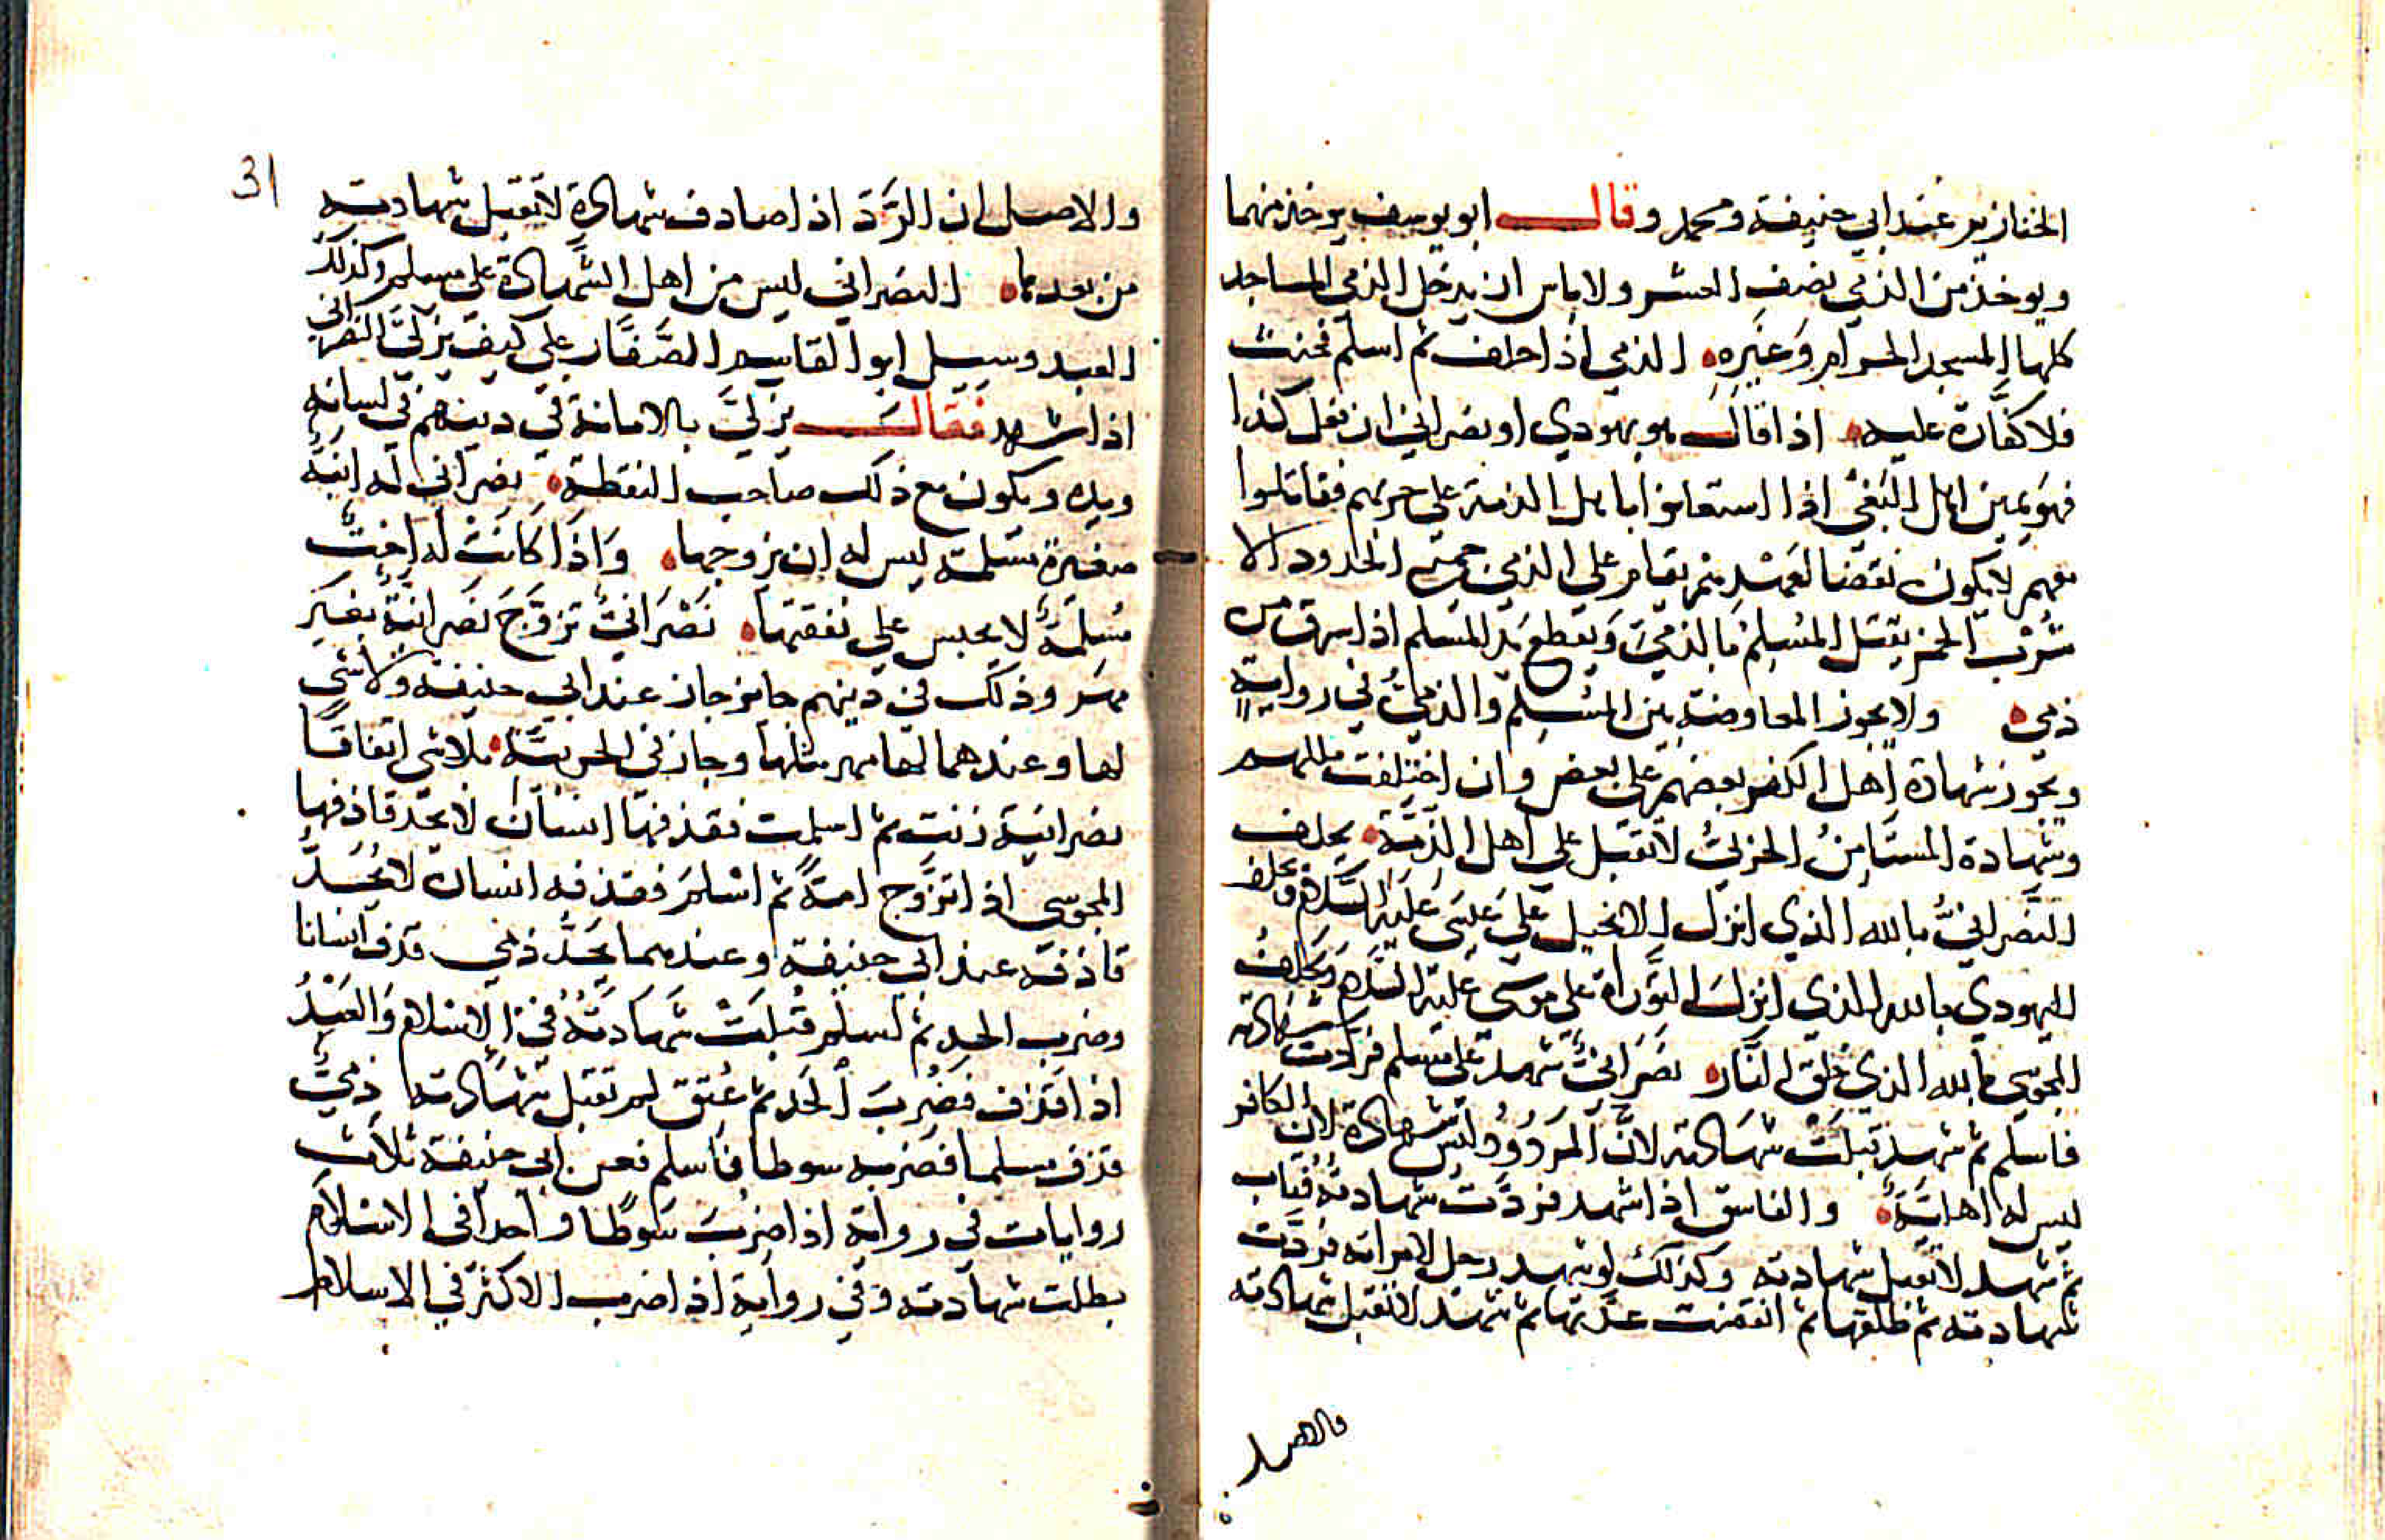 الخنازير عند ابي حنيفة ومحمد وقال ابو يوسف يوخذ منهما
ويوخذ من الذمي نصف العشر ولا باس ان يدخل الذمي المساجد
كلها المسجد الحرام وغيره الذمي اذا حلف ثم اسلم فحنث
فلا كفارة عليه اذا قال هو يهودي او نصراني ان فعل كذا
فهو يمين اهل البغي اذا استعانوا باهل الذمة على حربهم فقاتلوا
معهم لا يكون نقضا لعهدهم يقام على الذمي جميع الحدود الا
شرب الخمر يقتل المسلم بالذمي ويقطع يد المسلم اذا سرق من
ذمي ولا يجوز المفاوضة بين المسلم والذمي في رواية
ويجوز شهادة اهل الكفر بعضهم على بعض وان اختلفت مللهم
وشهادة المستامن الحربي لا تقبل على اهل الذمة يحلف
النصراني بالله الذي انزل الانجيل على عيسى عليه السلام ويحلف
اليهودي بالله الذي انزل التوراة على موسى عليه السلام ويحلف
المجوسي بالله الذي خلق النار نصراني شهد على مسلم فردت شهادته
فاسلم ثم شهد قبلت شهادته لان المردود ليس شهادة لان الكافر
ليس له اهلية والفاسق اذا شهد فردت شهادته فتاب
ثم شهد لا تقبل شهادته وكذلك لو شهد رجل لامراته فردت
شهادته ثم طلقها ثم انقضت عدتها ثم شهد لا تقبل شهادته
31
والاصل ان الرد اذا صادف شهادة لا تقبل شهادته
من بعدها النصراني ليس من اهل الشهادة على مسلم وكذلك
العبد وسيل ابو القاسم الصفار على كيف يزكي النصراني
اذا شهد فقال يزكي بالامانة في دينهم في لسانه
ويده ويكون مع ذلك صاحب اليقظة نصراني له ابنة
صغيرة مسلمة ليس له ان يزوجها واذا كانت له اخت
مسلمة لا يحبس على نفقتها نصراني تزوج نصرانية بغير
مهر وذلك في دينهم جايز جاز عند ابي حنيفة ولا شي
لها وعندهما لها مهر مثلها وجاز في الحربية بلا شي اتفاقا
نصرانية زنت ثم اسلمت فقذفها انسان لا يحد قاذفها
المجوسي اذا تزوج امه ثم اسلم فقذفه انسان لا يحد
قاذفه عند ابي حنيفة وعندهما يحد ذمي قذف انسانا
وضرب الحد ثم اسلم قبلت شهادته في الاسلام والعبد
اذا قذف فضرب الحد ثم عتق لم تقبل شهادته ذمي
قذف مسلما فضرب سوطا فاسلم فعن ابي حنيفة ثلاث
روايات في رواية اذا ضرب سوطا واحدا في الاسلام
بطلت شهادته وفي رواية اذا ضرب الاكثر في الاسلام